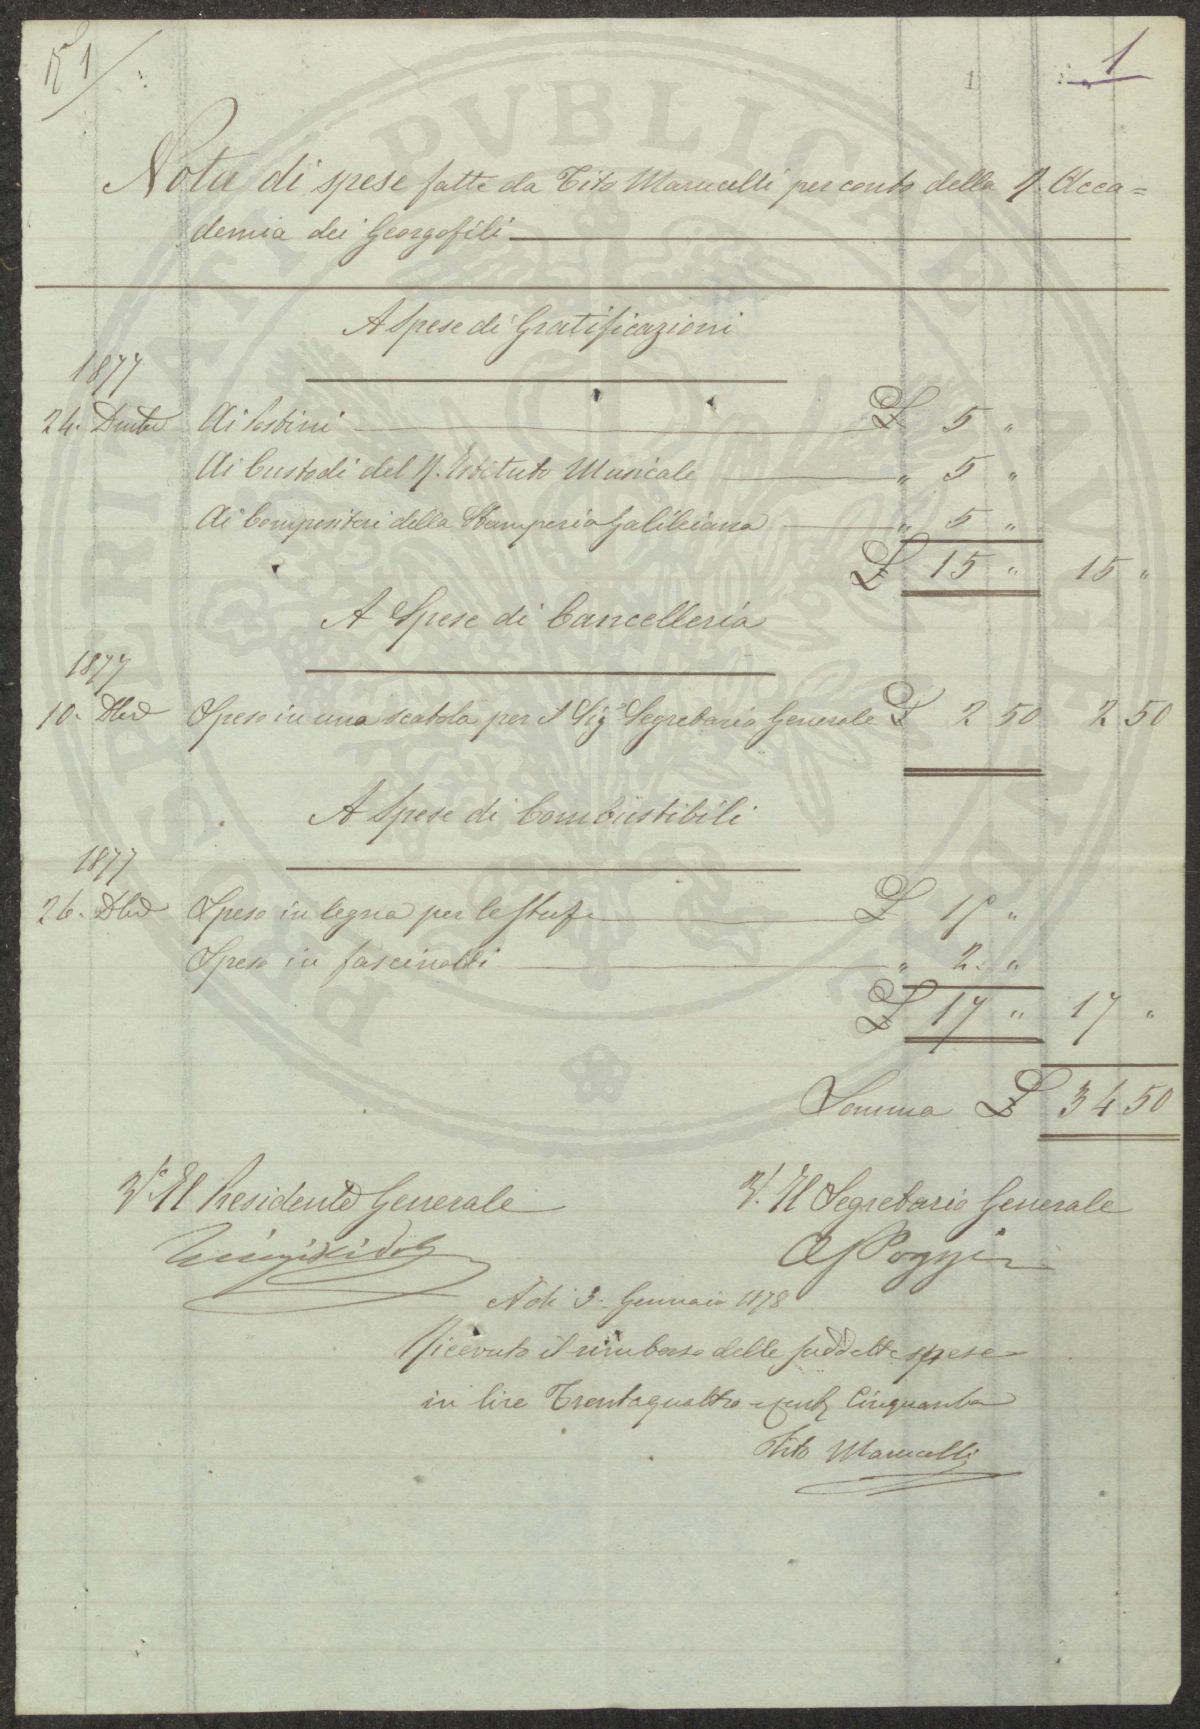 N° 1
1
Nota di spese fatte da Tito Marucelli per conto della R. Acca=
demia dei Georgofili
A Spese di Gratificazioni
1877
24. Dmbre Ai Postini £ 5 "
Ai Custodi del R. Istituto Musicale " 5 "
Ai Compositori della Stamperia Galileiana " 5 "
£ 15 " 15 "
A Spese di Cancelleria
1877
10. Dbre Speso in una scatola per il Sig.r Segretario Generale £ 2 50 2 50
A Spese di Combustibili
1877
26. Dbre Speso in legna per le stufe £ 15 "
Speso in fascinotti " 2. "
£ 17 " 17 "
Somma £ 34 50
V. Il Presidente Generale
V. Il Segretario Generale
Luigi Ridolfi
E Poggi
A dì 3. Gennaio 1878
Ricevuto il rimborso delle suddette spese
in lire Trentaquattro e Cent. Cinquanta
Tito Marucelli
PROSPERITATI PVBLICAE AVGENDAE